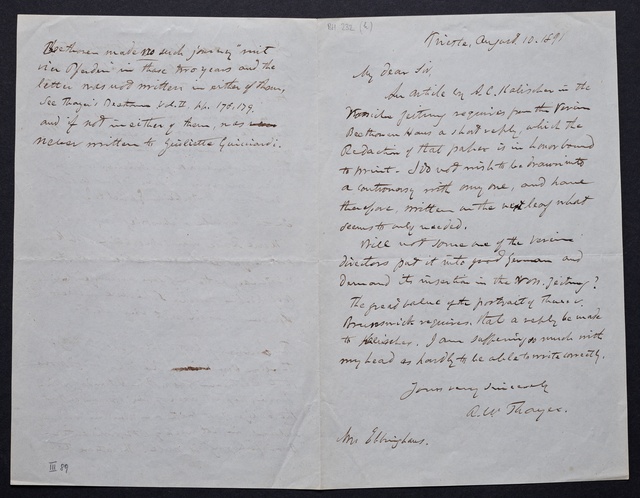 Beethoven made no such journey "mit
vier Pferden" in these two years and the
letter was not written in either of them,
See Thayer's Beethoven Vol. II, pp. 178, 179.
and if not in either of them, was
never written to Giulietta Guicciardi.
III 89
Trieste, August 10. 1891
My dear Sir,
An article by A.C. Kalischer in the
Vossische Zeitung requires from the Verein
Beethoven Haus a short reply, which the
Redaction of that paper is in honor bound
to print. I do not wish to be drawn into
a controversy with any one, and have
therefore, written on the next leaf what
seems to only needed.
Will not some one of the Verein
directors put it into good German and
demand its insertion in the Voss. Zeitung?
The great value of the portrait of Therese
Brunswick requires that a reply be made
to Kalischer. I am suffering so much with
my head as hardly to be able to write correctly.
Yours very sincerely
A. W. Thayer.
Ebbinghaus.